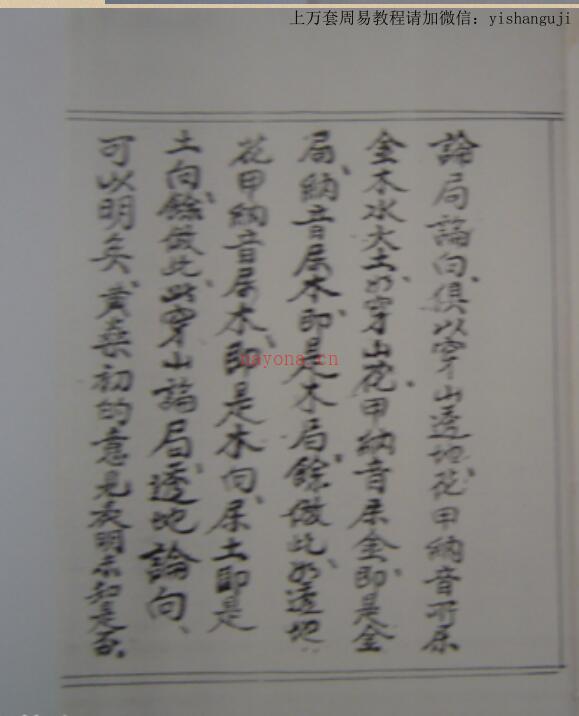 上万套周易教程请加微信：yishanguji
論局論向、俱以穿山透地、花甲納音所属
金木水火土、如穿山花甲納音属金、即是金
局、納音属木、即是木局、餘倣此、如透地
花甲納音属木、即是木向、属土即是
土向、餘倣此、此穿山論局、透地論向、
可以明矣、黄桑初的意見表明、未知是否。
nayona.cn